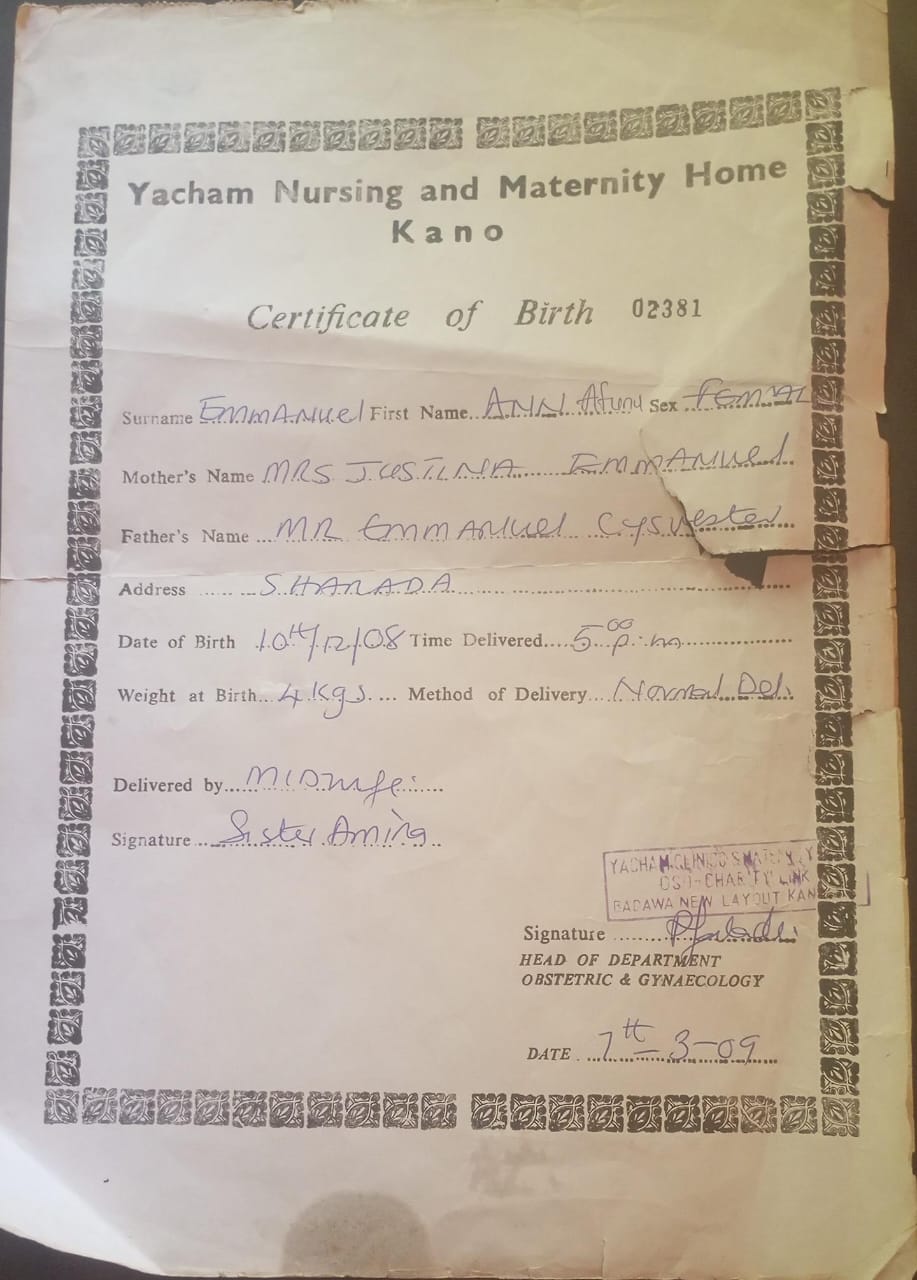 Yacham Nursing and Maternity Home
Kano
Certificate of Birth 02381
Surname EMMANUEL First Name ANN Sex FEMAL
Mother's Name MRS JUSTINA EMMANUEL
Father's Name MR EMMANUEL CYSVESTER
Address SHARADA
Date of Birth 10th/12/08 Time Delivered 5.00 p.m
Weight at Birth 4 kgs Method of Delivery Normal Del.
Delivered by MIDWIFE
Signature Sister Amina
YACHAM CLINIC & MATERNITY
CHARITY LINK
BADAWA NEW LAYOUT KAN
Signature
HEAD OF DEPARTMENT
OBSTETRIC & GYNAECOLOGY
DATE 7th-3-09